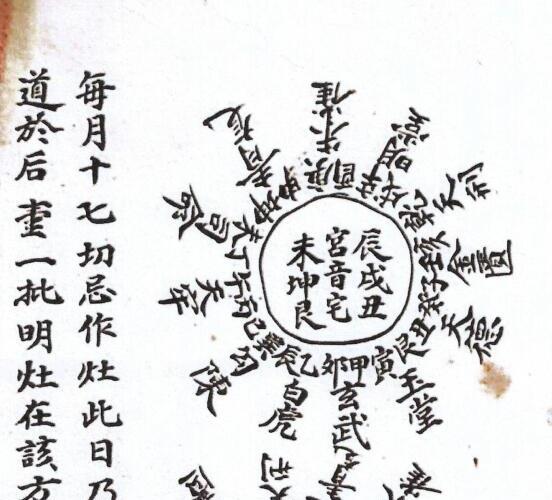 辰戌丑
宮音宅
未坤艮
朱雀
天刑
金匱
天德
玉堂
玄武
白虎
勾陳
天牢
司命
乾亥
壬子癸
丑艮
寅
甲卯
乙辰
巽巳
丙午丁
每月十七切忌作灶此日乃
道於后畫一批明灶在該方